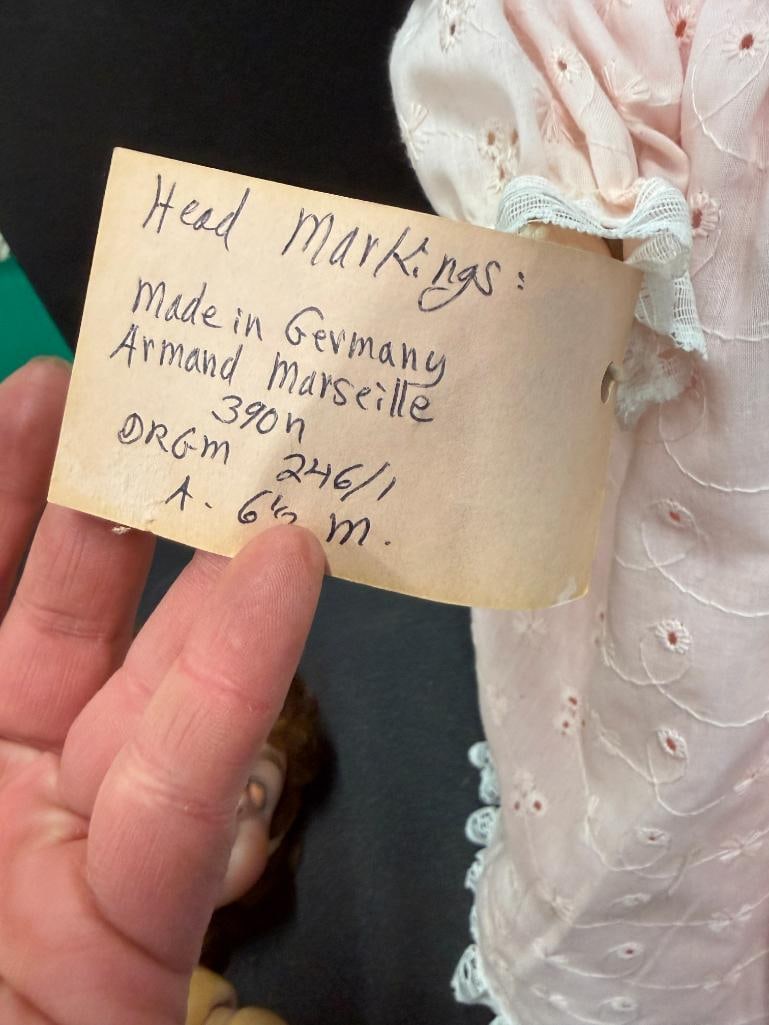 Head Markings:
Made in Germany
Armand Marseille
390n
DRGM 246/1
A. 6½ M.